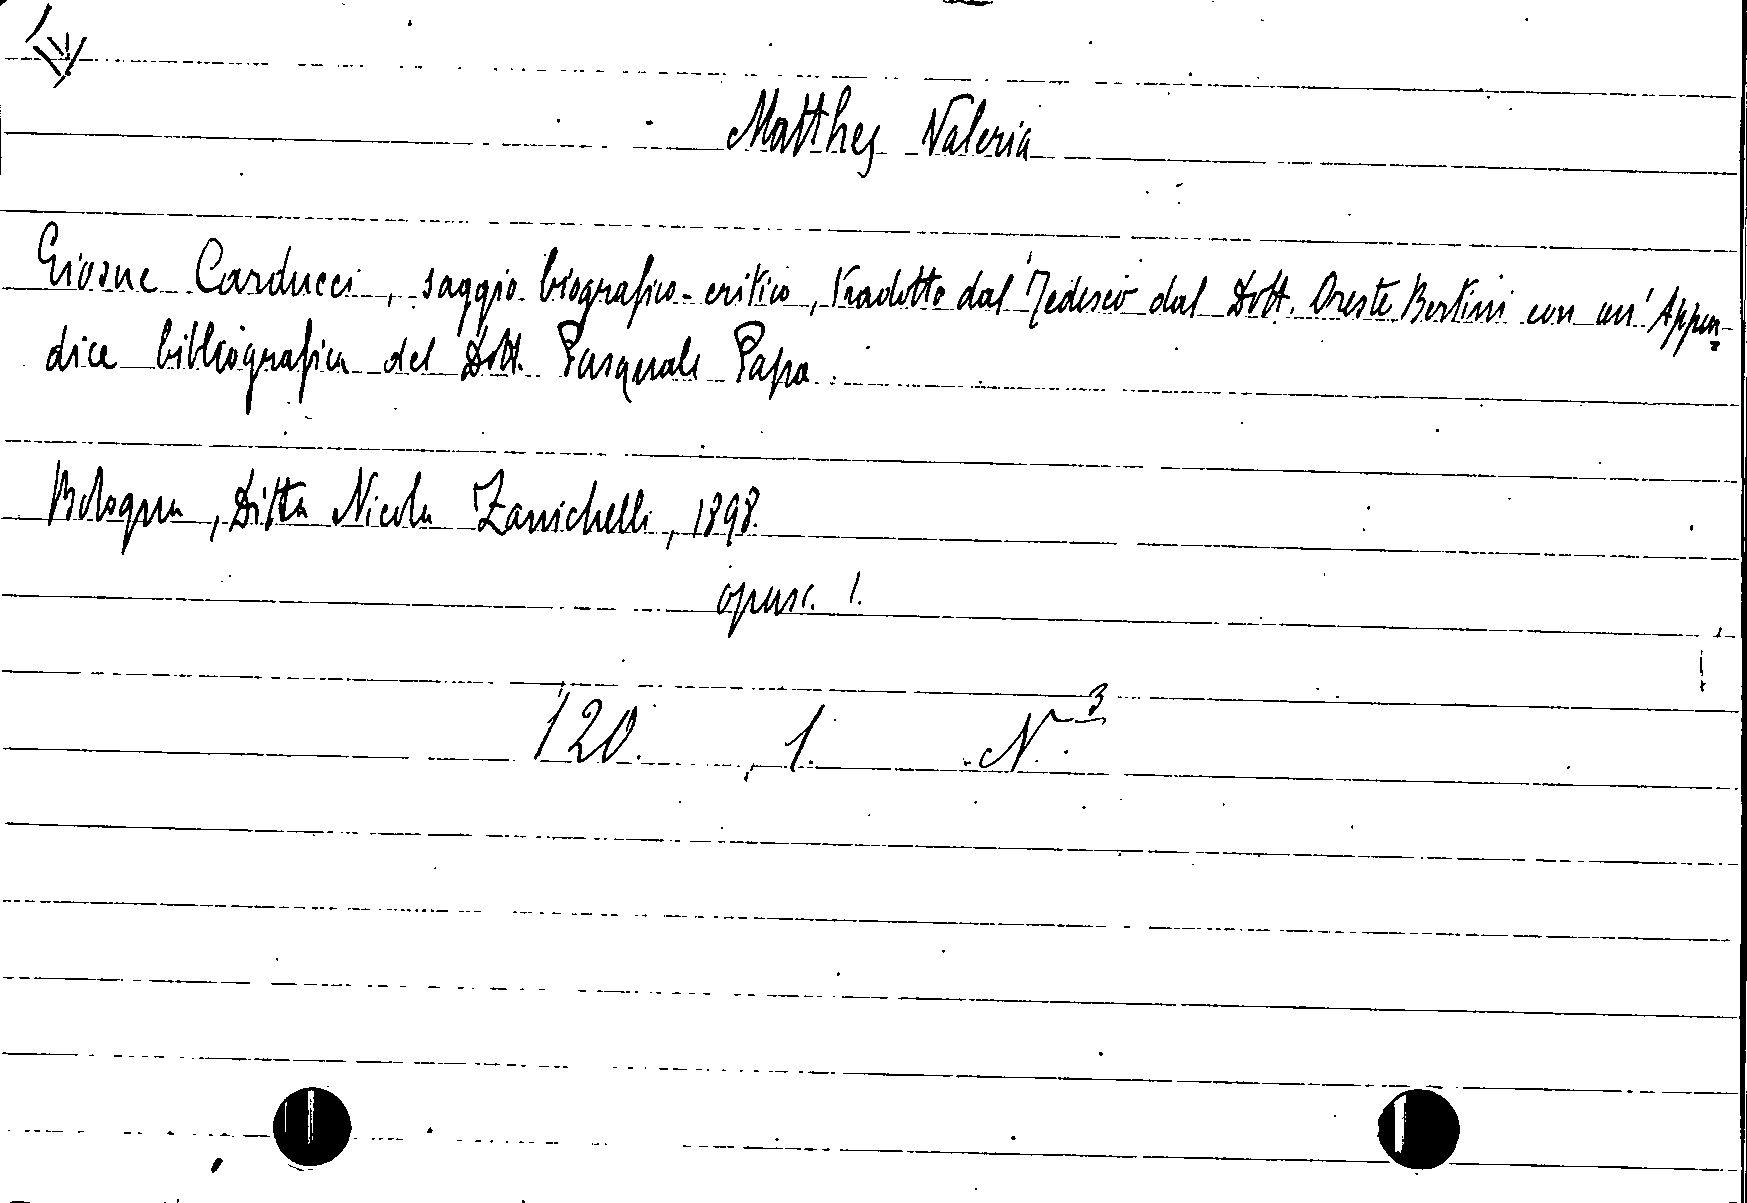 Matthes Valeria
Giosue Carducci, saggio biografico-critico, tradotto dal Tedesco dal Dott. Oreste Bertini con un' Appen=
dice bibliografica del Dott. Pasquale Papa.
Bologna, Ditta Nicola Zanichelli, 1898.
opusc. 1.
120. 1. N. 3